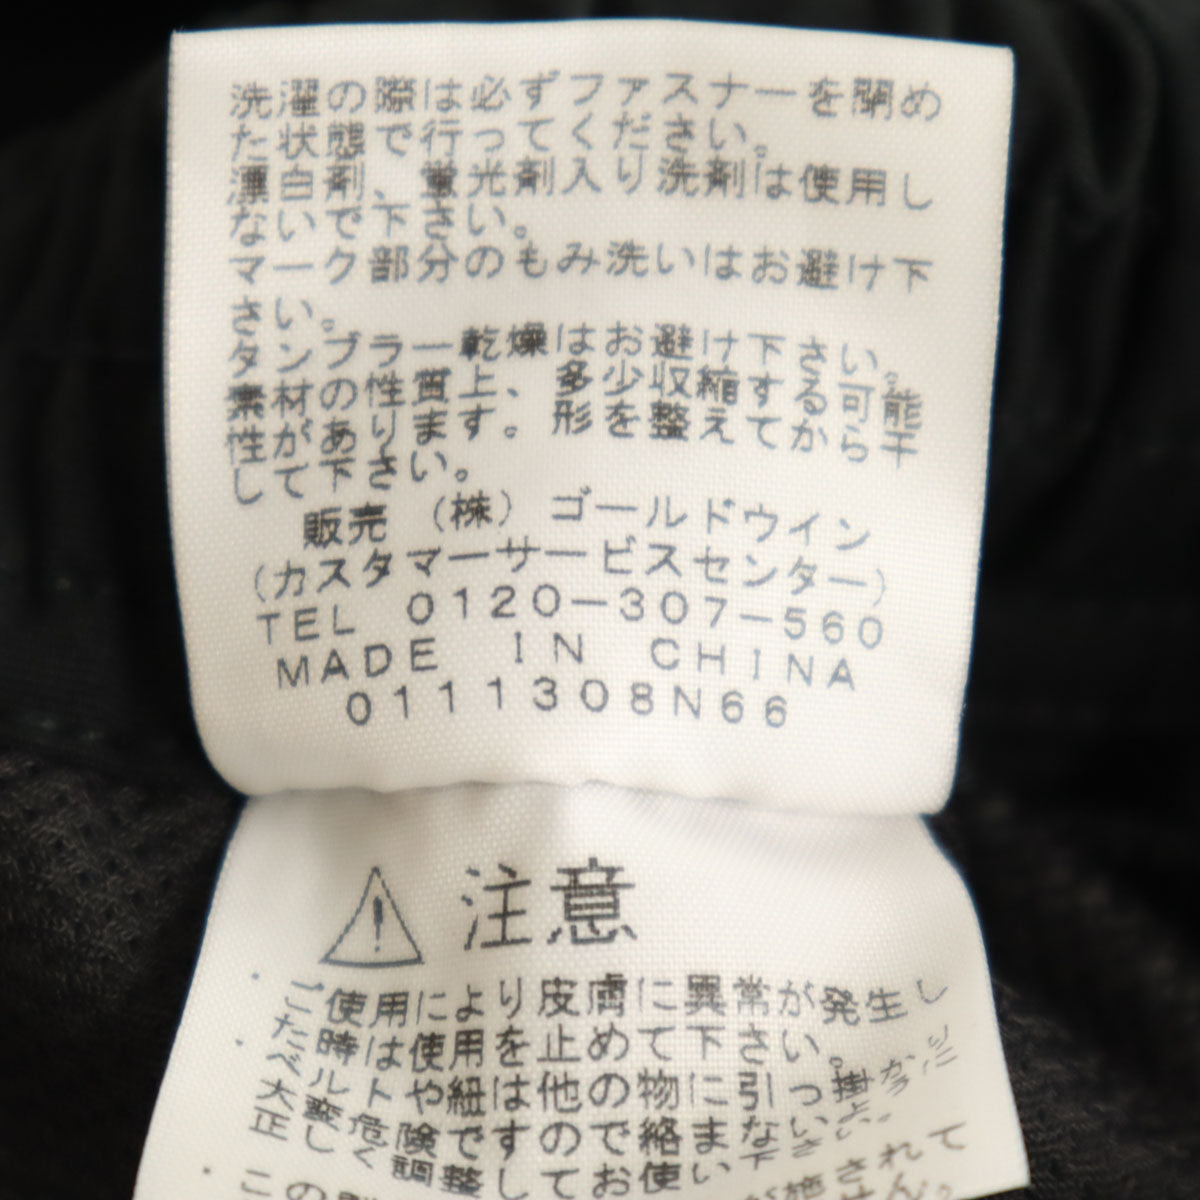 洗濯の際は必ずファスナーを閉め
た状態で行ってください。
漂白剤、蛍光剤入り洗剤は使用し
ないで下さい。
マーク部分のもみ洗いはお避け下
さい。
タンブラー乾燥はお避け下さい。
素材の性質上、多少収縮する可能
性があります。形を整えてから干
して下さい。
販売 (株) ゴールドウイン
(カスタマーサービスセンター)
TEL 0120-307-560
MADE IN CHINA
0111308N66
注意
・ご使用により皮膚に異常が発生し
た時は使用を止めて下さい。
・ベルトや紐は他の物に引っ掛かり
大変危険ですので絡まないように
正しく調整してお使い下さい。
・この